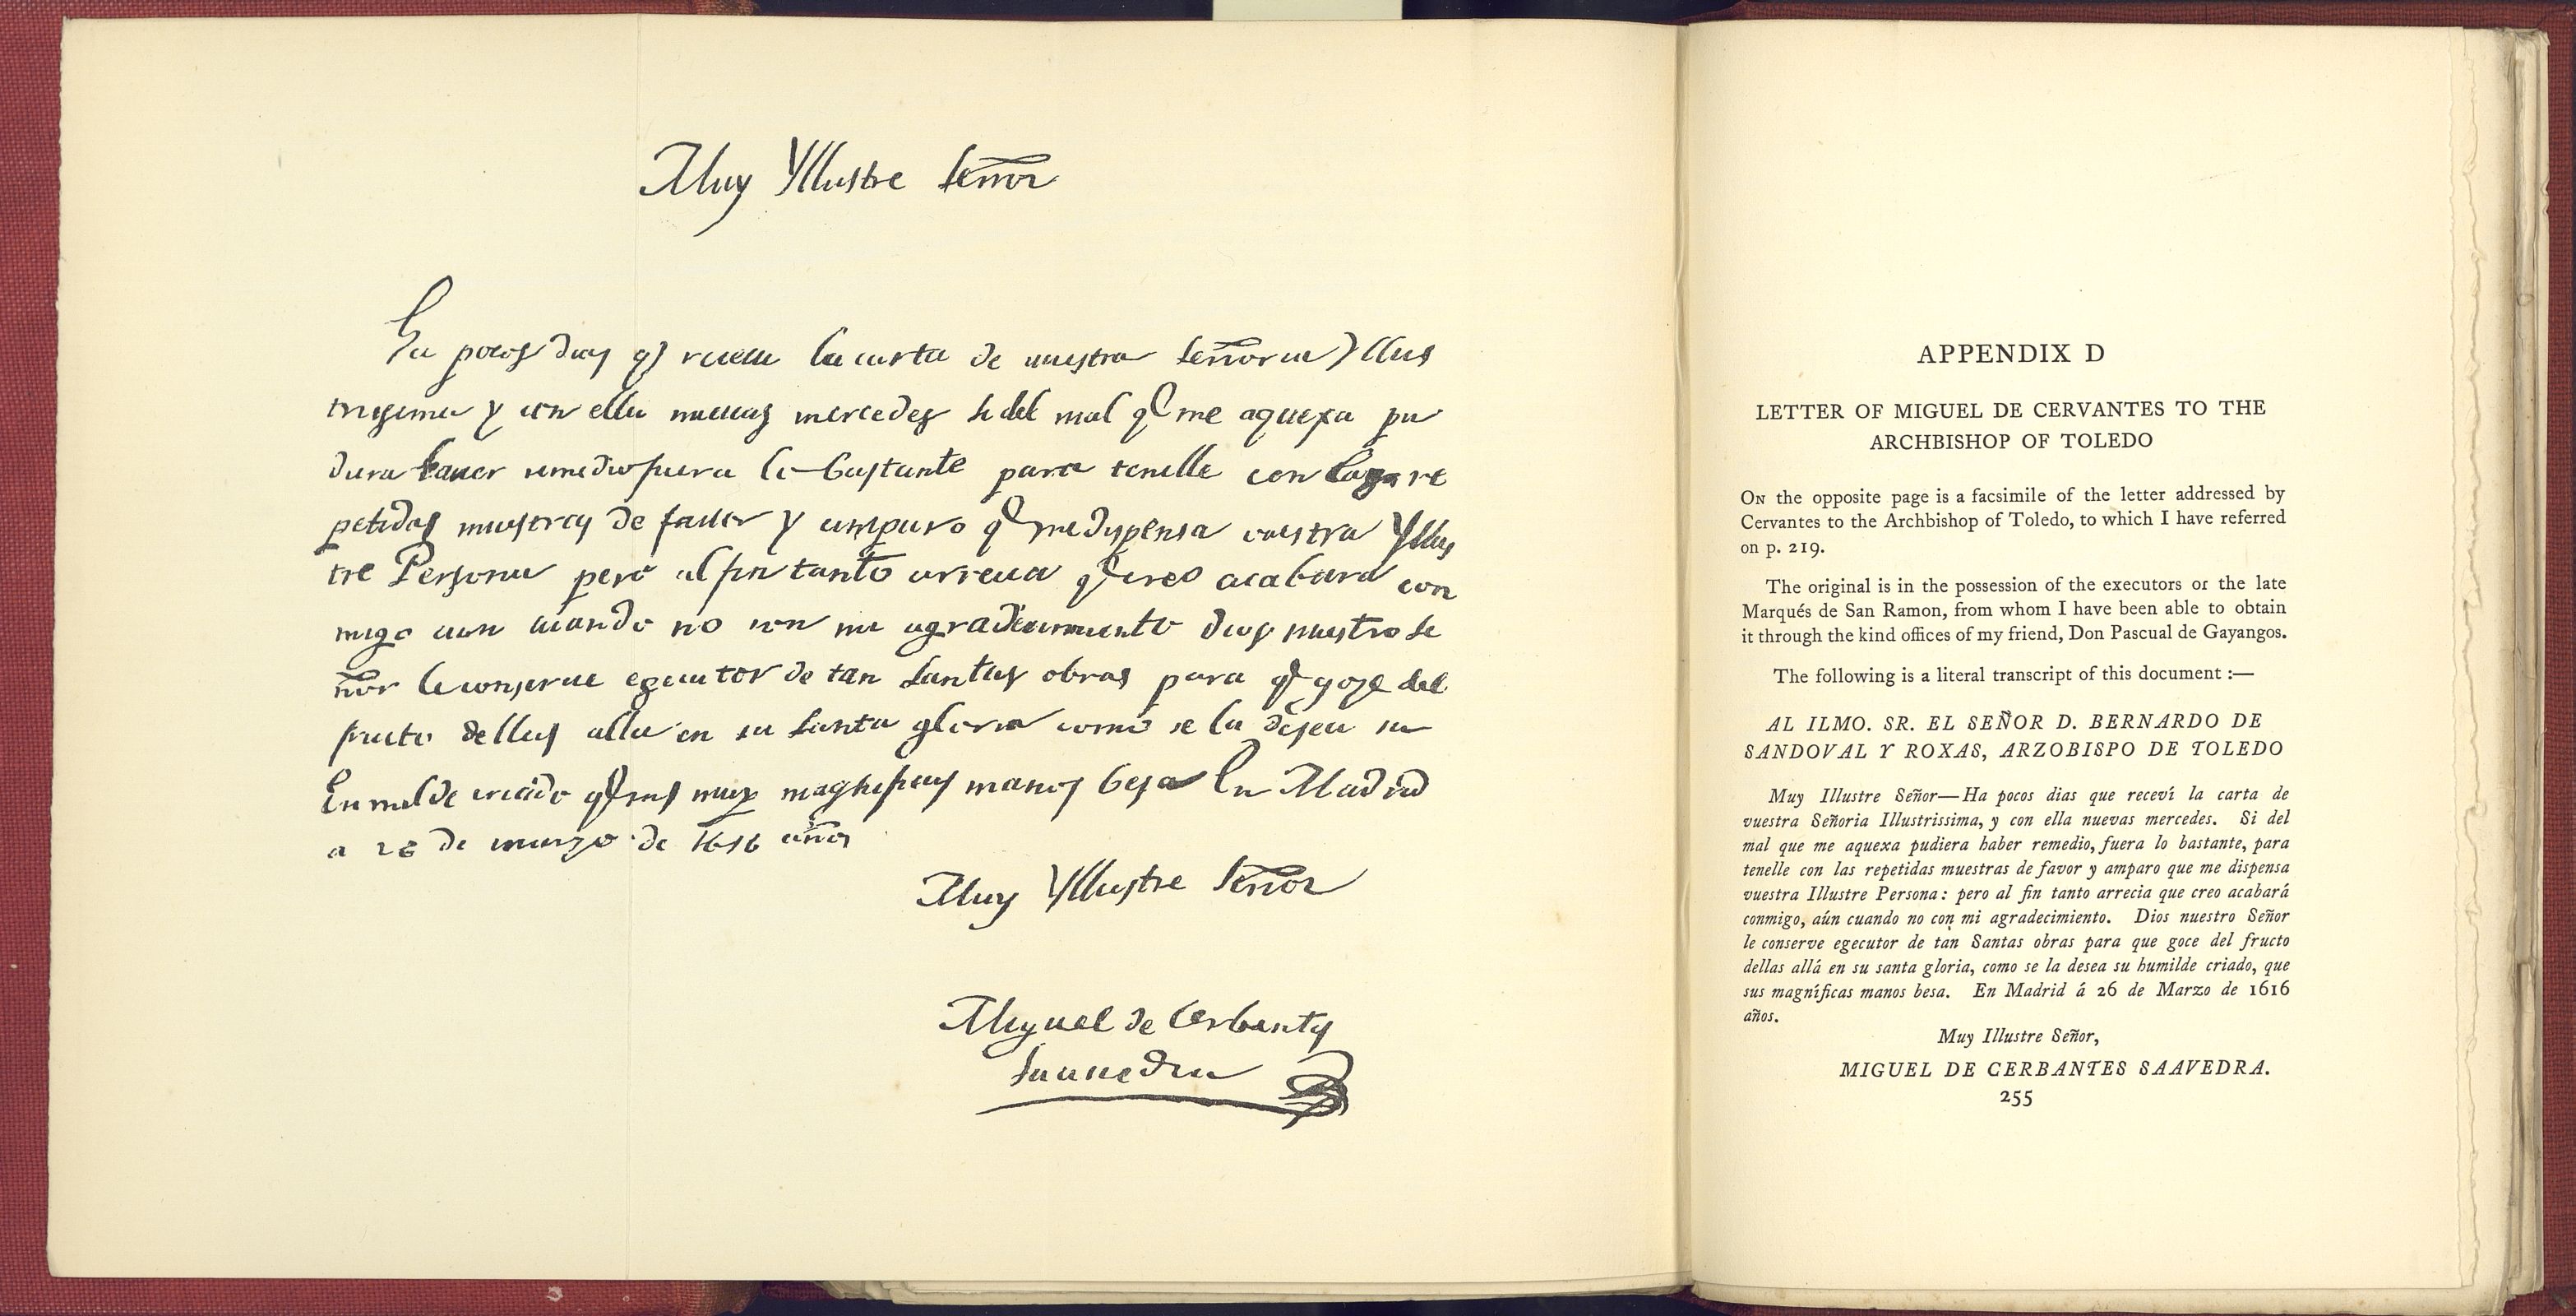 Muy Yllustre Señor
Ha pocos dias q receui la carta de vuestra Señoria Yllus
trisima y con ella nueuas mercedes si del mal q me aquexa pu
diera hauer remedio fuera lo bastante para tenelle con las re
petidas muestras de fauor y amparo q me dispensa vuestra Yllus
tre Persona pero al fin tanto arrecia q creo acabara con
migo aun cuando no con mi agradecimiento dios nuestro Se
ñor le conserue egecutor de tan Santas obras para q goze del
fructo dellas alla en su Santa gloria como se la desea su
humilde criado q sus muy magnificas manos besa En Madrid
a 26 de marzo de 1616 años
Muy Yllustre Señor
Miguel de Cerbantes
Saauedra
APPENDIX D
LETTER OF MIGUEL DE CERVANTES TO THE
ARCHBISHOP OF TOLEDO
ON the opposite page is a facsimile of the letter addressed by
Cervantes to the Archbishop of Toledo, to which I have referred
on p. 219.
The original is in the possession of the executors or the late
Marqués de San Ramon, from whom I have been able to obtain
it through the kind offices of my friend, Don Pascual de Gayangos.
The following is a literal transcript of this document :—
AL ILMO. SR. EL SEÑOR D. BERNARDO DE
SANDOVAL Y ROXAS, ARZOBISPO DE TOLEDO
Muy Illustre Señor—Ha pocos dias que receví la carta de
vuestra Señoria Illustrissima, y con ella nuevas mercedes. Si del
mal que me aquexa pudiera haber remedio, fuera lo bastante, para
tenelle con las repetidas muestras de favor y amparo que me dispensa
vuestra Illustre Persona: pero al fin tanto arrecia que creo acabará
conmigo, aún cuando no con mi agradecimiento. Dios nuestro Señor
le conserve egecutor de tan Santas obras para que goce del fructo
dellas allá en su santa gloria, como se la desea su humilde criado, que
sus magníficas manos besa. En Madrid á 26 de Marzo de 1616
años.
Muy Illustre Señor,
MIGUEL DE CERBANTES SAAVEDRA.
255